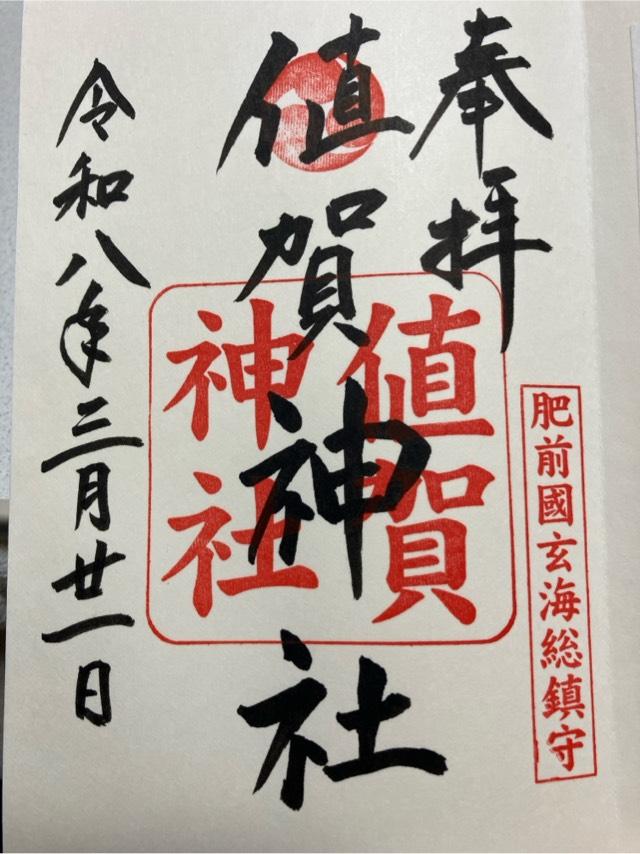 奉拝
肥前國玄海総鎮守
値賀神社
値賀
神社
令和八年三月廿一日